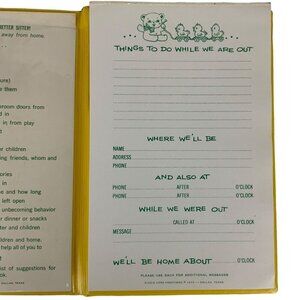 BETTER SITTER!
away from home.
...
ure)
e them
room doors from
d in
in from play
t
r children
ing friends, whom and
ories
s in
ne and how long
left open
unbecoming behavior
r dinner or snacks
ter and children
hildren and home.
help all of you to
st of suggestions for
ok.
DALLAS, TEXAS
THINGS TO DO WHILE WE ARE OUT
WHERE WE'LL BE
NAME
ADDRESS
PHONE
AND ALSO AT
PHONE AFTER O'CLOCK
PHONE AFTER O'CLOCK
WHILE WE WERE OUT
CALLED AT O'CLOCK
MESSAGE
WE'LL BE HOME ABOUT O'CLOCK
PLEASE USE BACK FOR ADDITIONAL MESSAGES
DALLAS, TEXAS